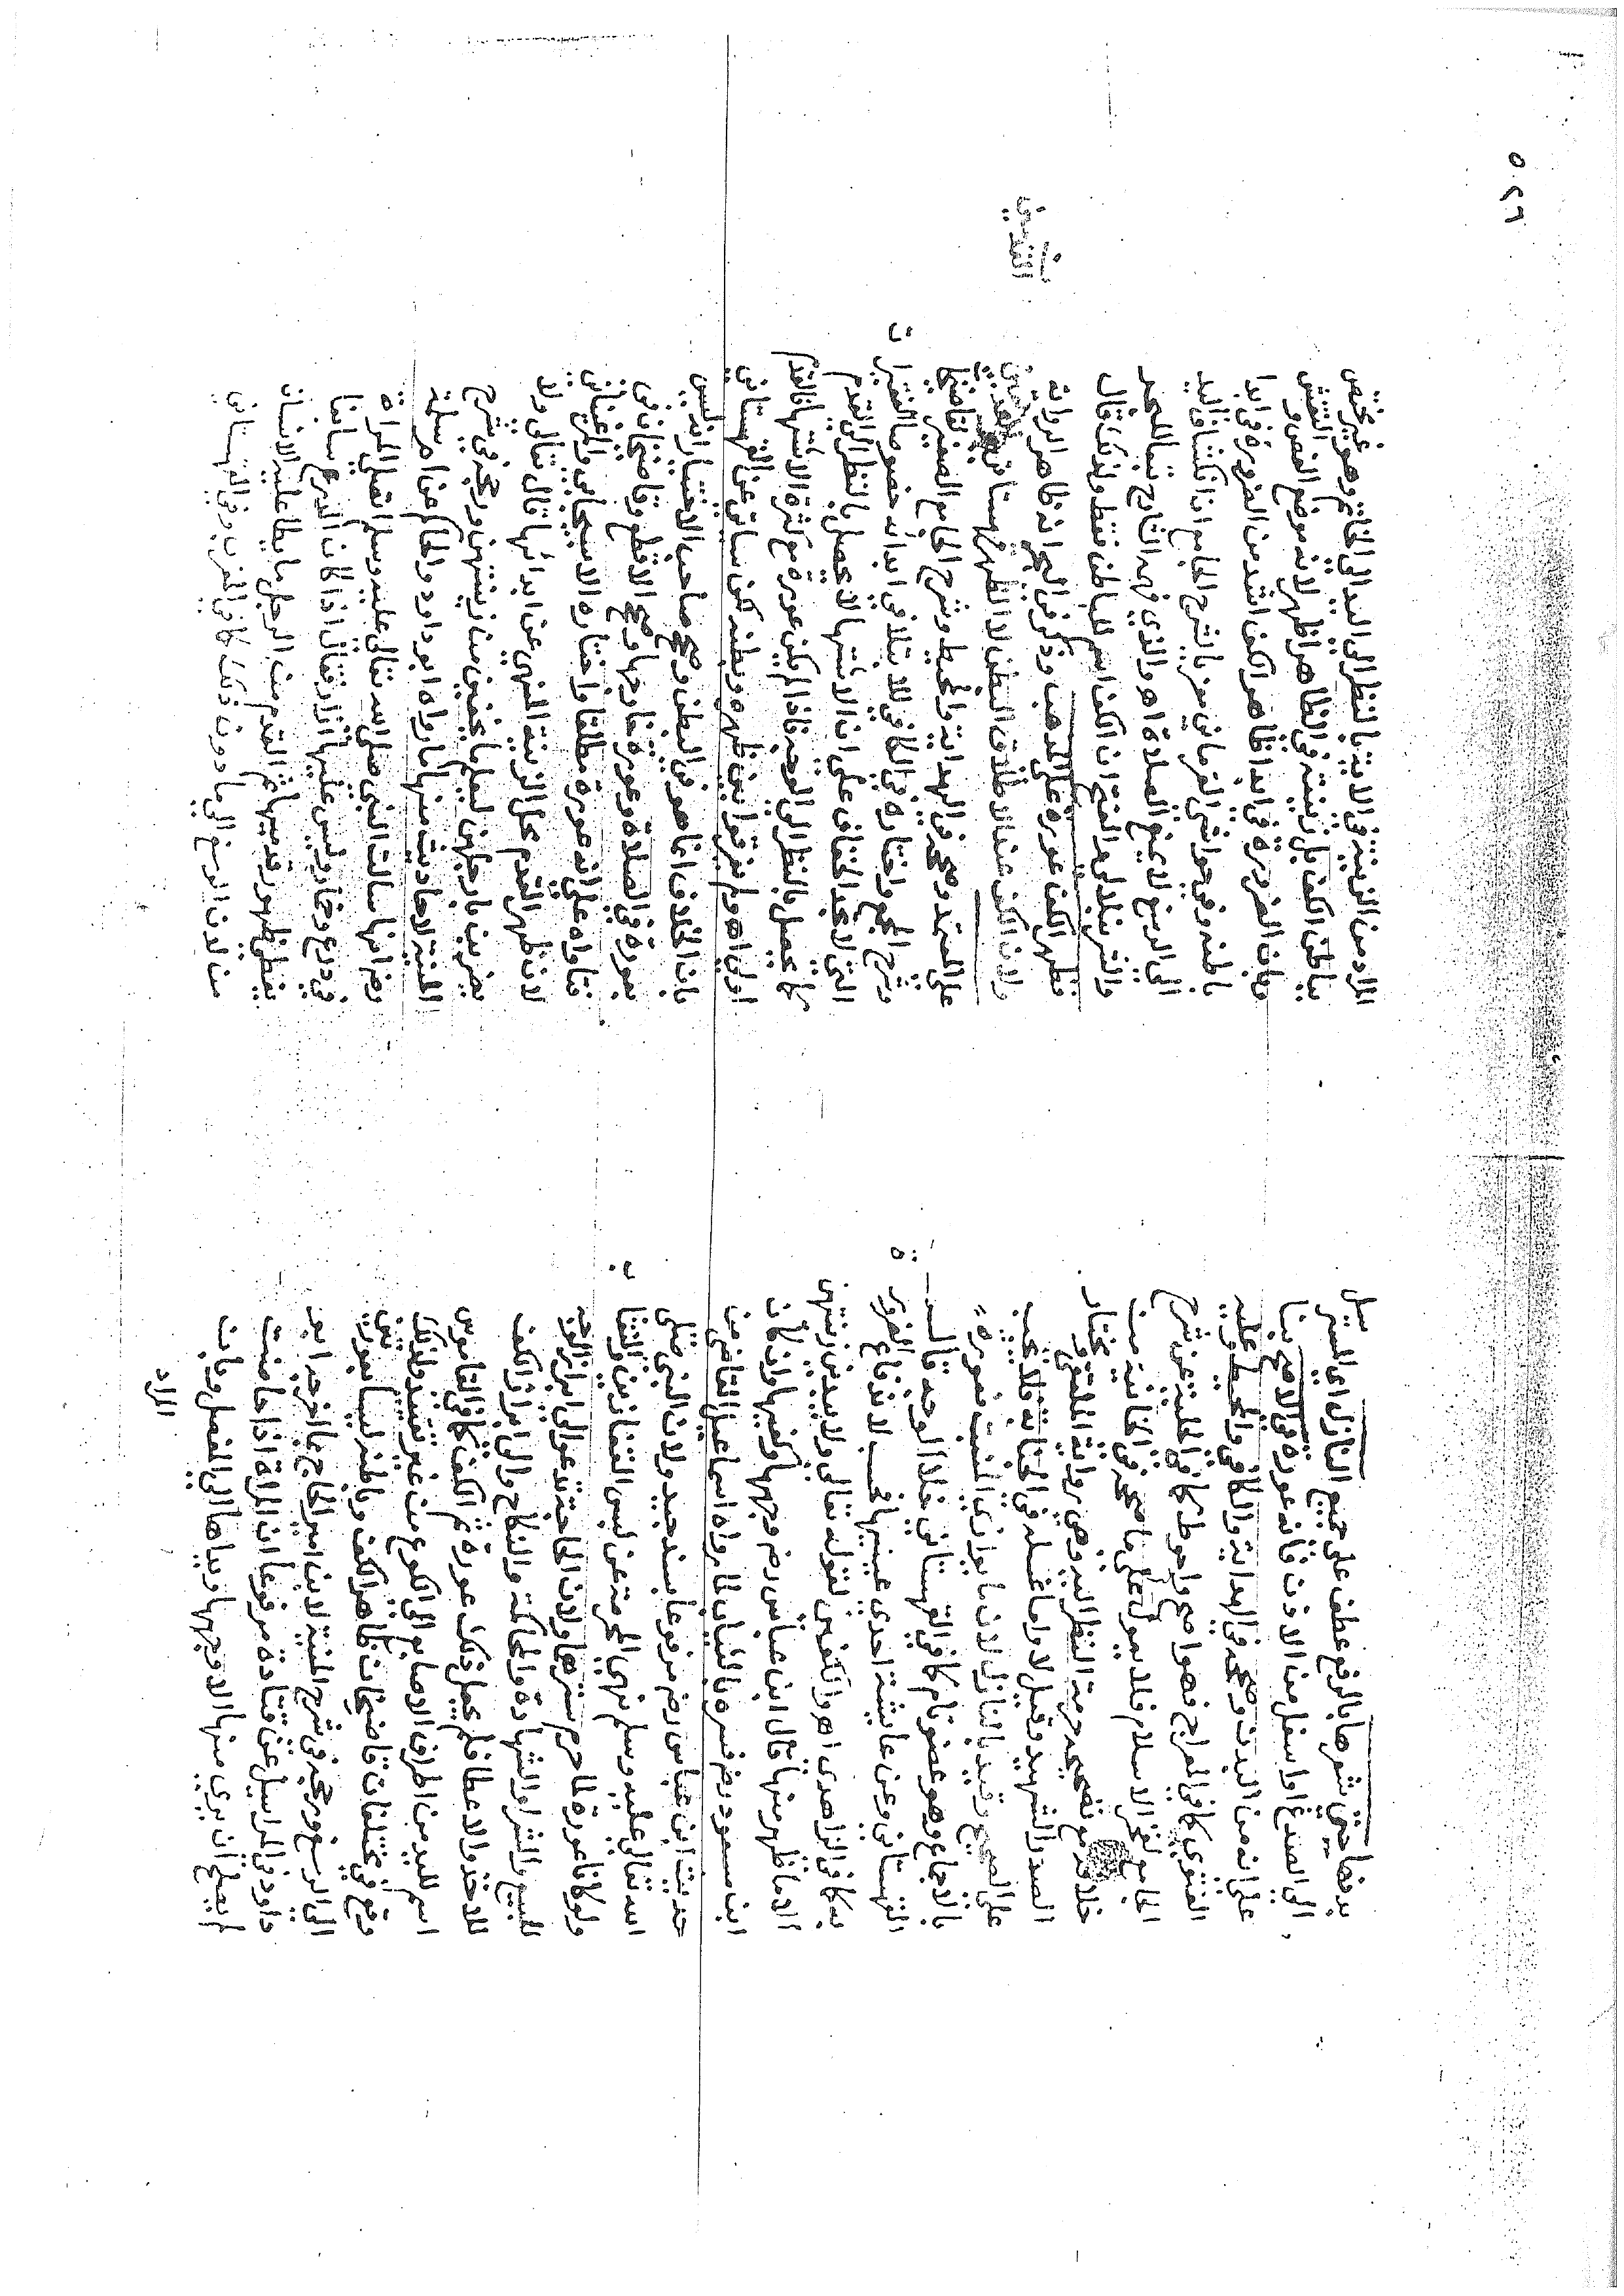 بدنها حتى شعرها بالرفع عطف على جميع النازل اي المسترسل
الى الصدغ او اسفل من الاذن فانه عورة في الاصح بنا
على انه من البدن وصححه في الهداية والكافي والمحيط وعليه
الفتوى كما في المعراج فهو اصح واحوط كما في الحلية عن شرح
الجامع لفخر الاسلام فلا يعول على ما صححه في الخانية من
خلافه مع تصحيحه حرمة النظر اليه وهي رواية المنتقى ومختار
الصدر الشهيد وقيل لا واما غسله في الجنابة فلا يجب
على الصحيح وقيد بالنازل لان ما يوازي المنبت فعورة
بالاجماع وهو عضو تام كما في القهستاني خلا الوجه قال
القهستاني وعن عايشة احدى عينيها فحسب لاندفاع الضرورة
به كما في الزاهدي اه والكفين لقوله تعالى ولا يبدين زينتهن
الا ما ظهر منها قال ابن عباس رض وجهها وكفيها وان كان
ابن مسعود رض فسره بالثياب لما رواه اسماعيل القاضي من
حديث ابن عباس رض مرفوعا بسند جيد ولان النبي صلى
الله تعالى عليه وسلم نهى المحرمة عن لبس القفازين والنقاب
ولو كانا عورة لما حرم سترهما ولان الحاجة تدعو الى ابراز الوجه
للبيع والشرا والشهادة والمحاكمة والنكاح والى ابراز الكف
للاخذ والاعطا فلم يجعل ذلك عورة ثم الكف كما في القاموس
اسم لليد من اطراف الاصابع الى الكوع من غير تقييد ولذلك
وقع في مختلفات قاضيخان ظاهر الكف وباطنه ليسا بعورتين
الى الرسغ ورجحه في شرح المنية لابن امير الحاج بما اخرجه ابو
داود في المراسيل عن قتادة مرفوعا ان المراة اذا حاضت
لم يصلح ان يرى منها الا وجهها ويداها الى المفصل وبان
المراد
المراد من الزينة في الاية بالنظر الى اليد الخاتم وهو غير مختص
بباطن الكف بل زينته في الظاهر اظهر لانه موضع الفص والنقش
وبان الضرورة في ابدا ظاهر الكف اشد من الضرورة في ابدا
باطنه وفي حواشي القرماني معزيا شرح الجامع ان كشف اليد
الى الرسغ لا يمنع الصلاة اه والذي الشارح تبعا للبحر
والشرنبلالي والفتح ان الكف اسم للباطن فقط ولذلك قال
فظهر الكف عورة على المذهب وذكر في البحر انه ظاهر الرواية
ولان الكف عند الاطلاق البطن لا الظهر قهستاني والقدمين
على المعتمد وصححه في الهداية والمحيط وشرح الجامع الصغير لقاضيخان
وشرح المجمع واختاره في الكافي للابتلا في ابدائه خصوصا الفقيرات
التي لا تجد الخفاف على ان الاشتها لا يحصل بالنظر الى القدم
كما يحصل بالنظر الى الوجه فاذا لم يكن عورة مع كثرة الاشتها فالقدم
اولى اه ولم يفرقوا بين ظهره وبطنه لكن سياتي عن القهستاني
بان الخلاف انما هو في البطن وصحح صاحب الاختيار انه ليس
بعورة في الصلاة وعورة خارجها وصحح الاقطع وقاضيخان في
فتاواه على انه عورة مطلقا واختاره الاسبيجابي والمرغيناني
لان ظهر القدم محل الزينة المنهي عن ابدائها قال تعالى ولا
يضربن بارجلهن ليعلم ما يخفين من زينتهن ورجحه في شرح
المنية لاحاديث منها ما رواه ابو داود والحاكم عن ام سلمة
رض انها سالت النبي صلى الله تعالى عليه وسلم اتصلي المراة
في درع وخمار وليس عليها ازار فقال اذا كان الدرع سابغا
يغطي ظهور قدميها ثم القدم من الرجل ما يطا عليه الانسان
من لدن الرسغ الى ما دون ذلك كما في المغرب وفي القهستاني